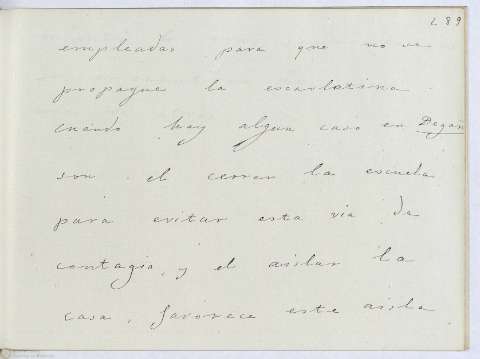 289
empleadas para que no se
propague la escarlatina
cuando hay algun caso en Degaña
son el cerrar la escuela
para evitar esta via de
contagio, y el aislar la
casa, favorece este aisla